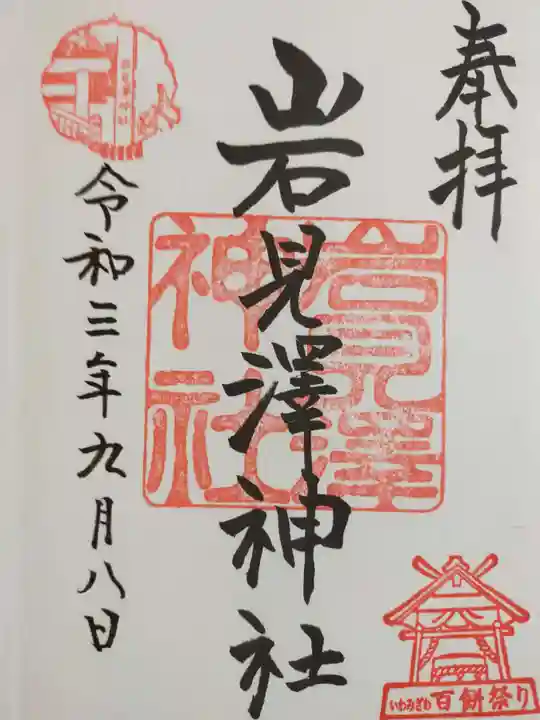 奉拝
岩見澤神社
岩見澤
神社
令和三年九月八日
いわみざわ 百餅祭り